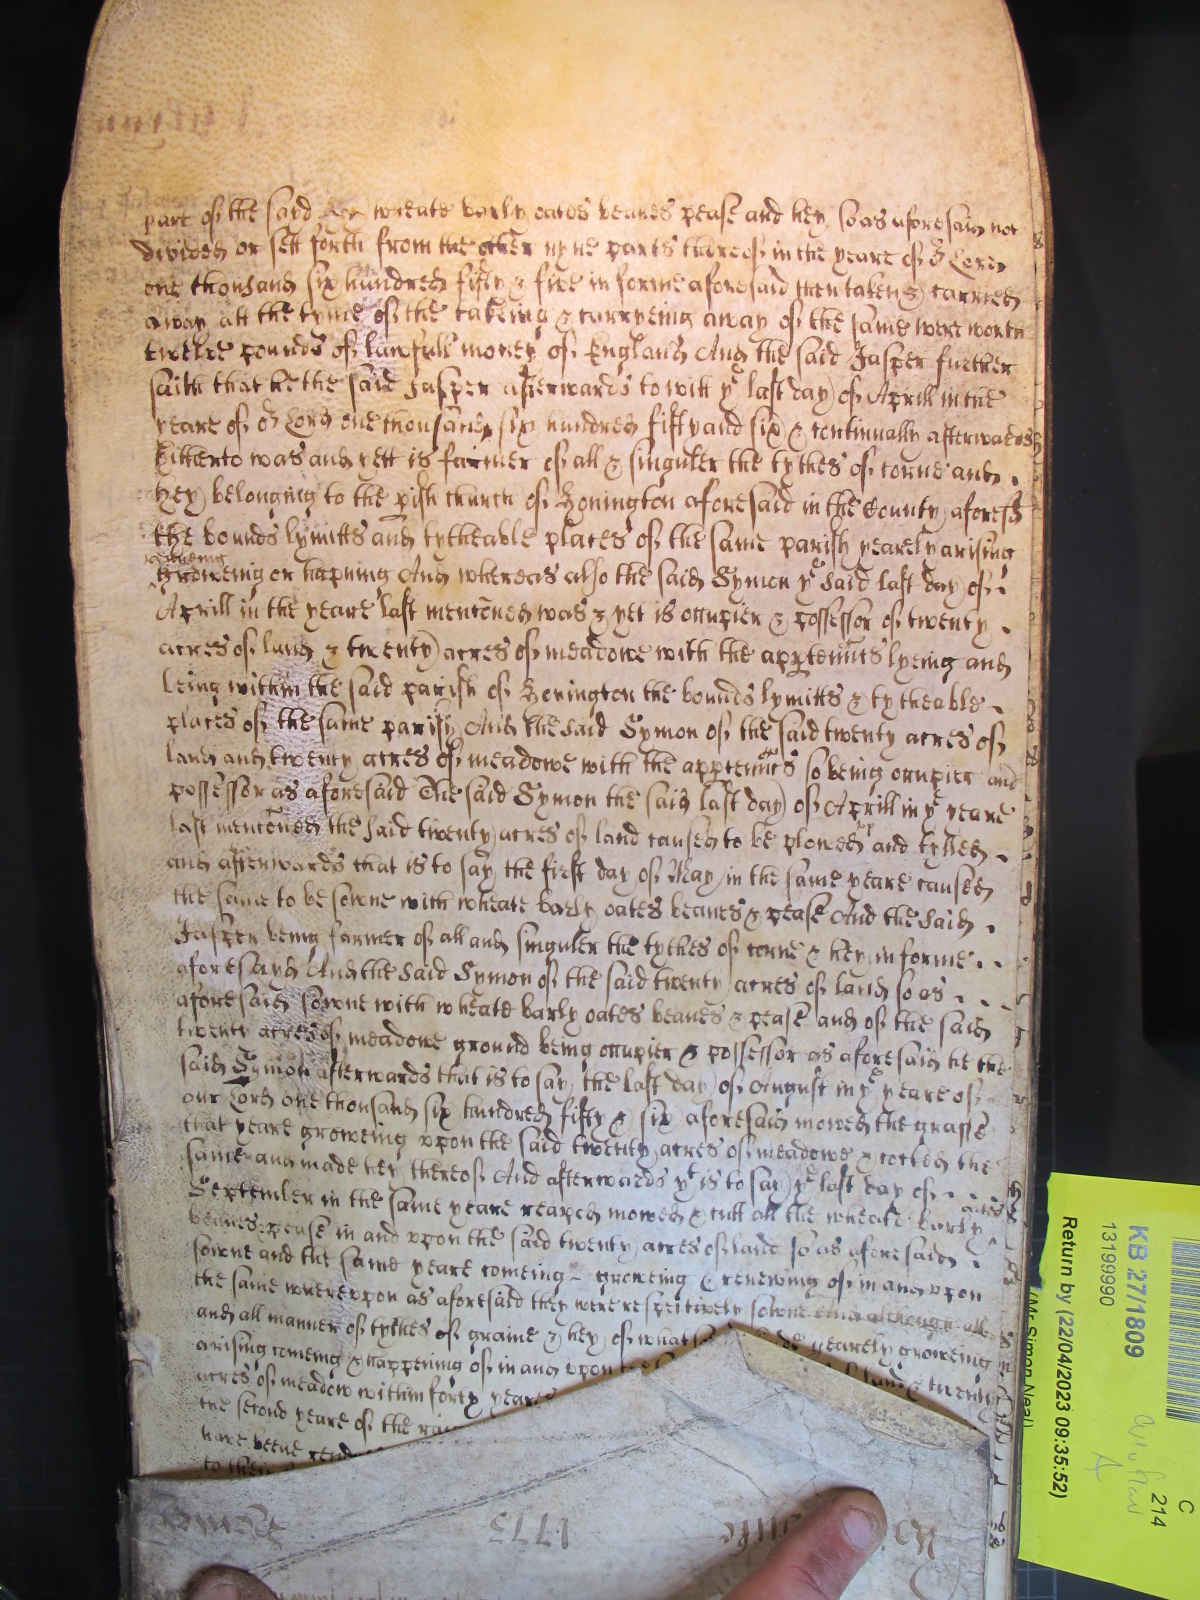 part of the said wheate barly oates beanes pease and hey so as aforesaid not
divided or sett forth from the other nyne parts thereof in the yeare of or Lord
one thousand six hundred fifty & five in forme aforesaid then taken & carried
away att the tyme of the takeing & carryeing away of the same were worth
twelve pounds of lawfull money of England And the said Jasper further
saith that he the said Jasper afterwards to witt ye last day of Aprill in the
yeare of or Lord one thousand six hundred fifty and six & continually afterwards
hitherto was and yett is farmer of all & singuler the tythes of corne and
hey belonging to the pish church of Honington aforesaid in the County aforesd
the bounds lymitts and tytheable places of the same parish yearely arising
renewing
groweing or hapning And whereas also the said Symon ye said last day of
Aprill in the yeare last mencōned was & yet is occupier & possessor of twenty
acres of land & twenty acres of meadowe with the apptennts lyeing and
being within the said parish of Honington the bounds lymitts & tytheable
places of the same parish And the said Symon of the said twenty acres of
land and twenty acres of meadowe with the apptennts so being occupier and
possessor as aforesaid The said Symon the said last day of Aprill in ye yeare
last mencōned the said twenty acres of land caused to be plowed and tylled
and afterwards that is to say the first day of May in the same yeare caused
the same to be sowne with wheate barly oates beanes & pease And the said
Jasper being farmer of all and singuler the tythes of corne & hey in forme
aforesayd And the said Symon of the said twenty acres of land so as
aforesaid sowne with wheate barly oates beanes & pease and of the said
twenty acres of meadowe ground being occupier & possessor as aforesaid he the
said Symon afterwards that is to say the last day of August in ye yeare of
our Lord one thousand six hundred fifty & six aforesaid mowed the grasse
that yeare groweing upon the said twenty acres of meadowe & cutted the
same and made hey thereof And afterwards yt is to say ye last day of
September in the same yeare reaped mowed & cutt all the wheate barly oates
beanes & pease in and upon the said twenty acres of land so as aforesaid
sowne and the same yeare comeing groweing & renewing of in and upon
the same whereupon as aforesaid they were respectively sowne And although all
and all manner of tythes of graine & hey of what yearely groweing
ariseing comeing & happening of in and upon land & twenty
acres of meadow within forty yeares
the second yeare of the
have beene
to
1773
KB 27/1809
13199990
Return by (22/04/2023 09:35:52)
(Mr Simon Neal)
C
214
A